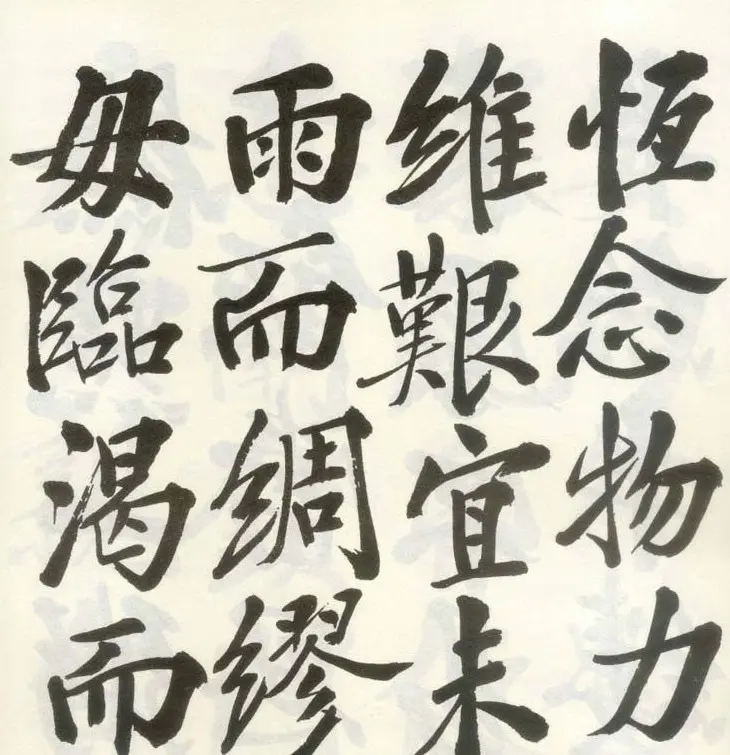 恆念物力
維艱宜未
雨而綢繆
毋臨渴而